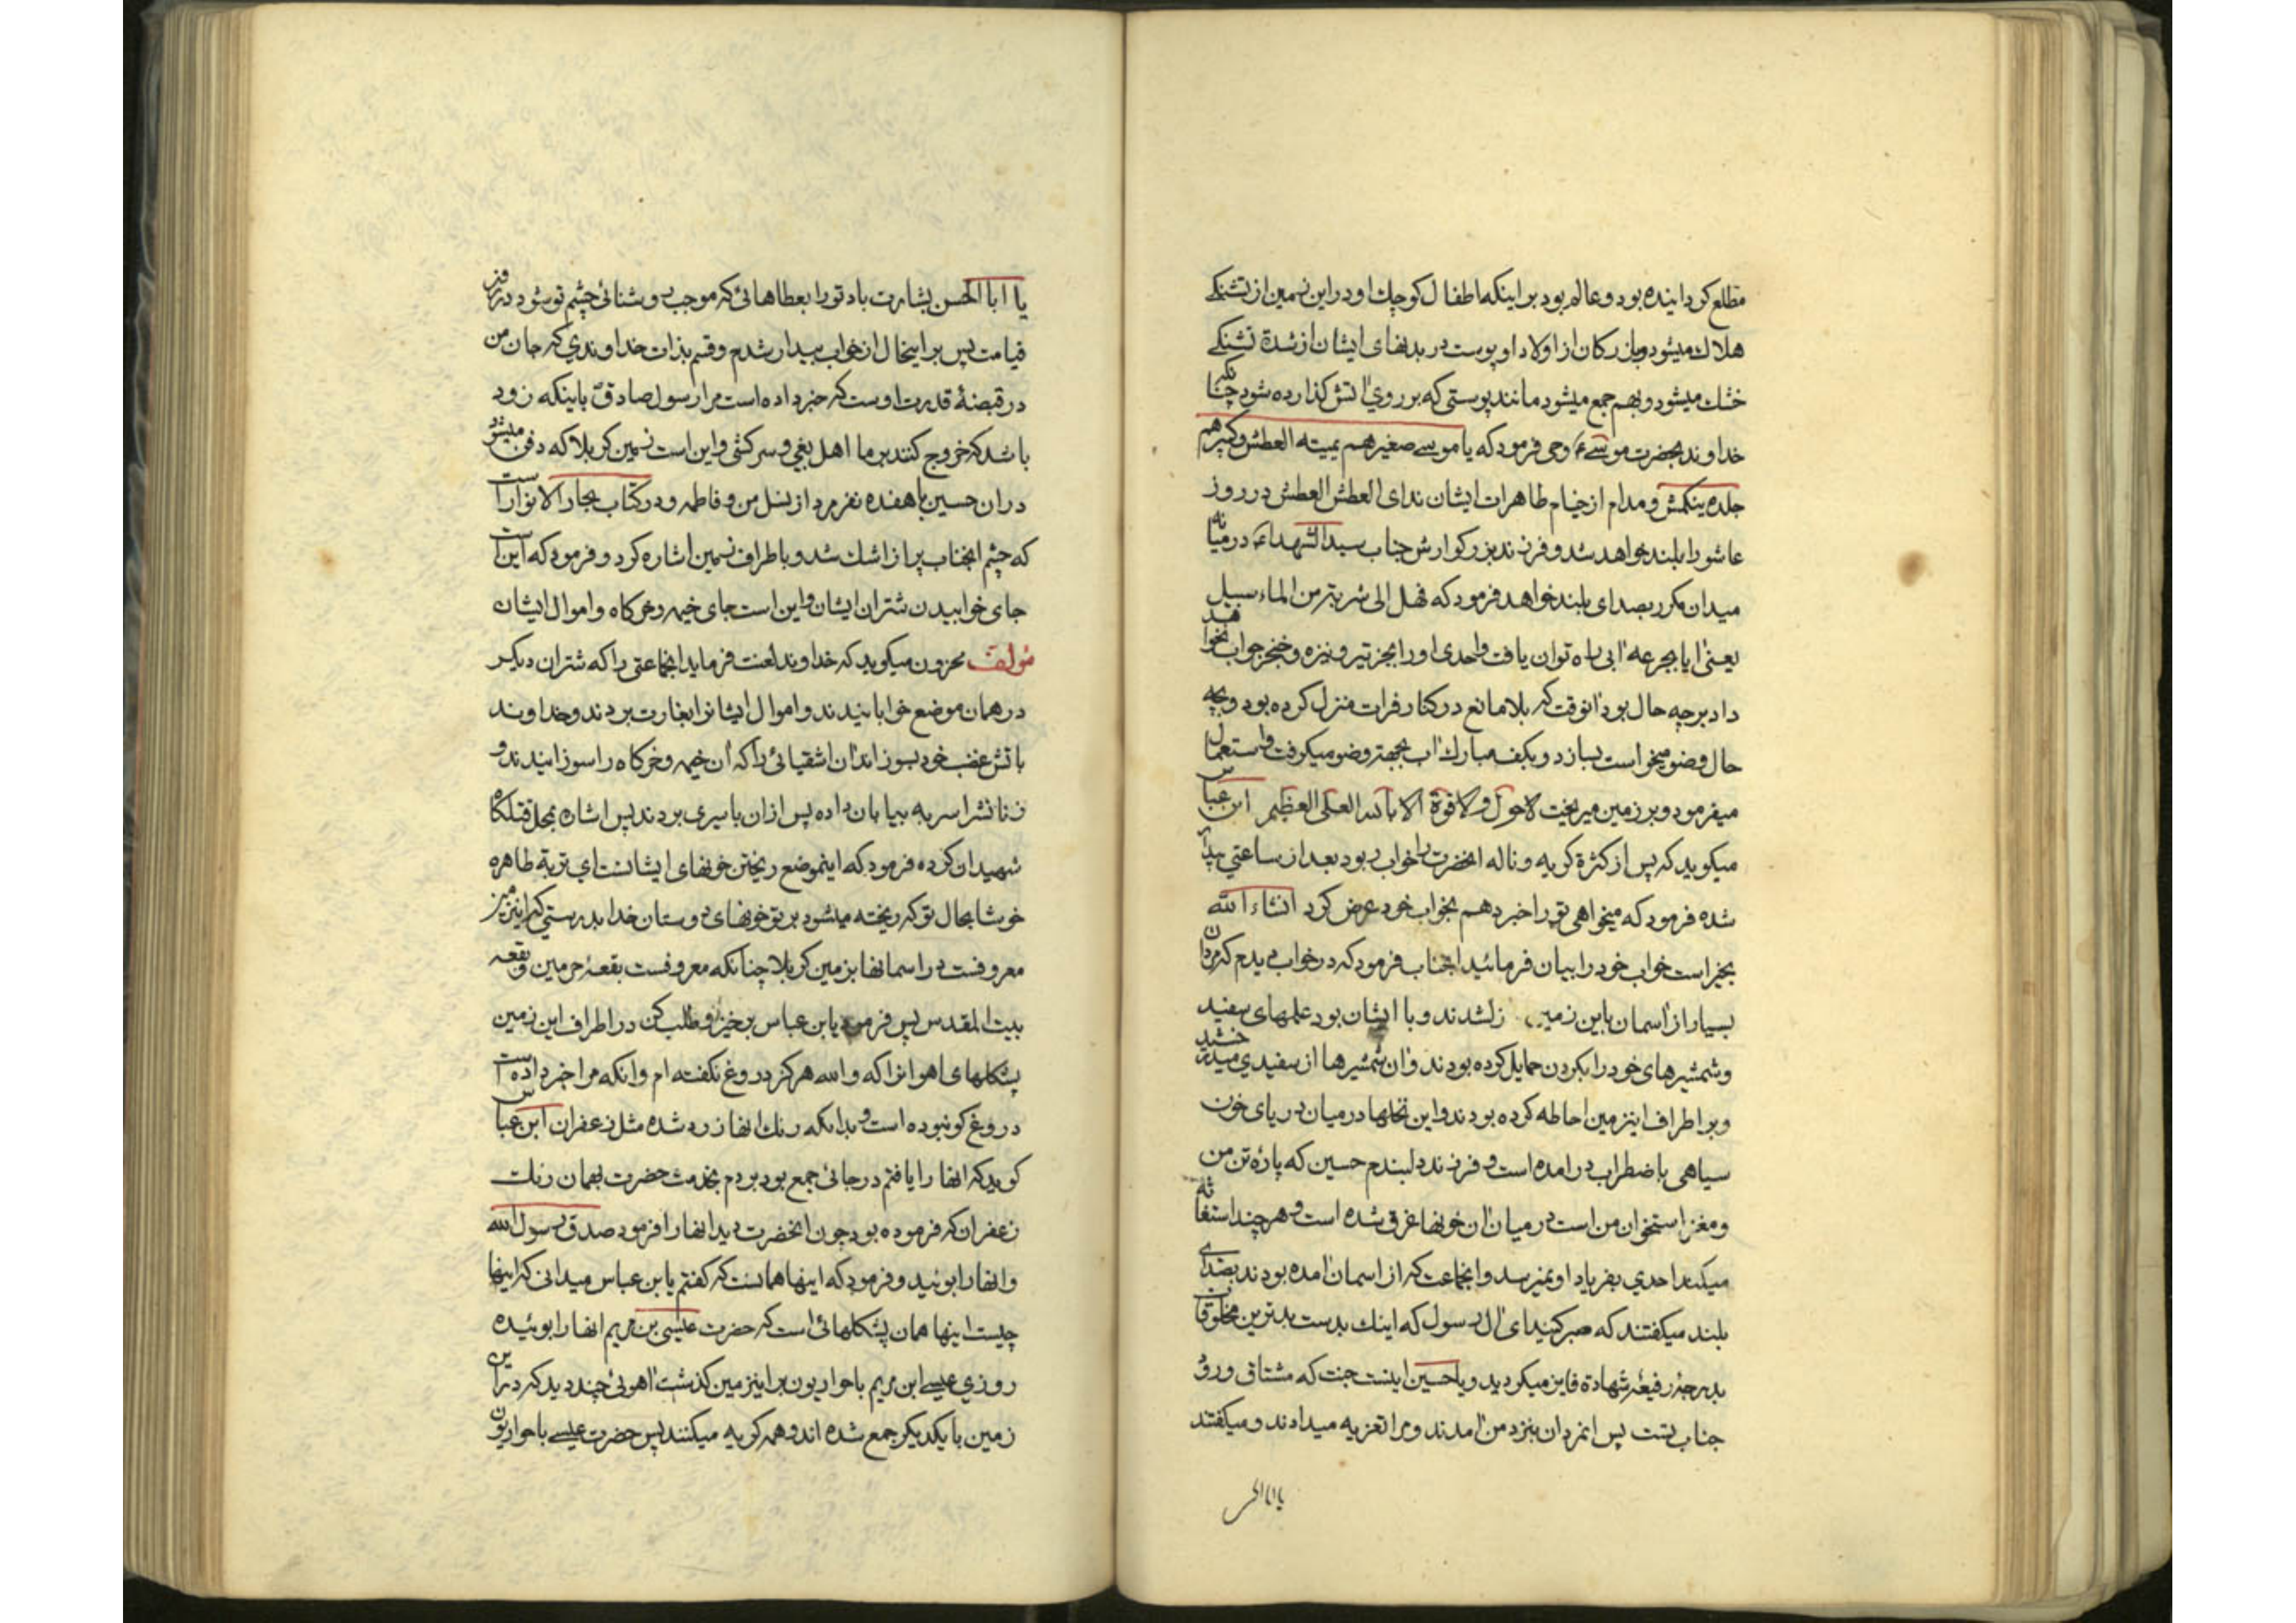 مطلع کردانیده بود و عالم بود براینکه اطفال کوچك او در این زمین از تشنکے
هلاك میشود و بزرکان از اولاد او پوست در بدنهای ایشان از شدة تشنکے
خشك میشود و بهم جمع میشود مانند پوستی که بر روی اتش کذارده شود چنانکه
خداوند بحضرت موسےٰ ع وحی فرمود که یا موسے صغیرهم یمیته العطش وکبیرهم
جلده ینکمش و مدام از خیام طاهرات ایشان ندای العطش العطش در روز
عاشورا بلند خواهد شد و فرزند بزرکوارش جناب سید الشهداء ع در میانه
میدان مکرر بصدای بلند خواهد فرمود که فهل الی شربة من الماء سبیل
یعنی ایا بجرعه ابی راه توان یافت واحدی او را بجز تیر و نیزه و خنجر جواب نخواهد
داد برچه حال بود انوقت که بلا مانع در کنار فرات منزل کرده بود وبچه
حال وضو میخواست بسازد و بکف مبارك اب بجهة وضو میکرفت واستعمال
میفرمود و بر زمین میریخت لا حول و لا قوة الا بالله العلی العظیم ابن عباس
میکوید که پس از کثرة کریه و ناله انحضرت را خواب ربود بعد از ساعتی بیدار
شده فرمود که میخواهی تو را خبر دهم بخواب خود عرض کرد انشاء الله
بخیر است خواب خود را بیان فرمائید انجناب فرمود که در خواب دیدم که مردان
بسیار از اسمان باین زمین نازل شدند و با ایشان بود علمهای سفید
و شمشیرهای خود را بکردن حمایل کرده بودند و ان شمشیرها از سفیدی میدرخشید
و بر اطراف اینزمین احاطه کرده بودند و این نخلها در میان دریای خون
سیاهی باضطراب درامده است و فرزند دلبندم حسین که پارهٔ تن من
و مغز استخوان من است در میان ان خونها غرق شده است و هرچند استغاثه
میکند احدی بفریاد او نمیرسد و انجماعت که از اسمان امده بودند بصدای
بلند میکفتند که صبر کنید ای ال رسول که اینك بدست بدترین مخلوقات
بدرجهٔ رفیعهٔ شهادة فایز میکردید و یا حسین اینست جنت که مشتاق ورود
جناب تست پس انمردان بنزد من امدند و مرا تعزیه میدادند و میکفتند
یا ابا الحسن
یا ابا الحسن بشارت باد تو را بعطاهائی که موجب روشنائی چشم تو شود در روز
قیامت پس بر اینحال از خواب بیدار شدم و قسم بذات خداوندی که جان من
در قبضهٔ قدرت اوست که خبر داده است مرا رسول صادق باینکه زود
باشد که خروج کنند بر ما اهل بغی و سرکشی و این است زمین کربلا که دفن میشود
در ان حسین با هفده نفر مرد از نسل من و فاطمه و در کتاب بحار الانوار است
که چشم انجناب پر از اشك شد و باطراف زمین اشاره کرد و فرمود که این است
جای خوابیدن شتران ایشان و این است جای خیمه و خرکاه و اموال ایشان
مؤلف محزون میکوید که خداوند لعنت فرماید انجماعتی را که شتران دیکر
در همان موضع خوابانیدند و اموال ایشانرا بغارت بردند و خداوند
باتش غضب خود بسوزاند ان اشقیائی را که ان خیمه و خرکاه را سوزانیدند و
زنانشرا سر به بیابان داده پس از ان باسیری بردند پس اشاره بمحل قتلکاه
شهیدان کرده فرمود که اینموضع ریختن خونهای ایشانست ای تربة طاهره
خوشا بحال تو که ریخته میشود بر تو خونهای دوستان خدا بدرستی که اینزمین
معروفست در اسمانها بزمین کربلا چنانکه معروفست بقعهٔ حرمین و بقعه
بیت المقدس پس فرمود یابن عباس برخیز و طلب کن در اطراف این زمین
پشکلهای اهوانرا که والله هرکز دروغ نکفته ام و انکه مرا خبر داده است
دروغ کو نبوده است و بدانکه رنك انها زرد شده مثل زعفران ابن عباس
کوید که انها را یافتم در جائی جمع بود بردم بخدمت حضرت بهمان رنك
زعفران که فرموده بود چون انحضرت دید انها را فرمود صدق رسول الله
و انها را بوئید و فرمود که اینها همانست که کفتم یابن عباس میدانی که اینها
چیست اینها همان پشکلهائی است که حضرت عیسی بن مریم انها را بوئیده
روزی عیسے ابن مریم با حواریون بر اینزمین کذشت اهوئی چند دید که در این
زمین با یکدیکر جمع شده اند و همه کریه میکنند پس حضرت عیسے با حواریون